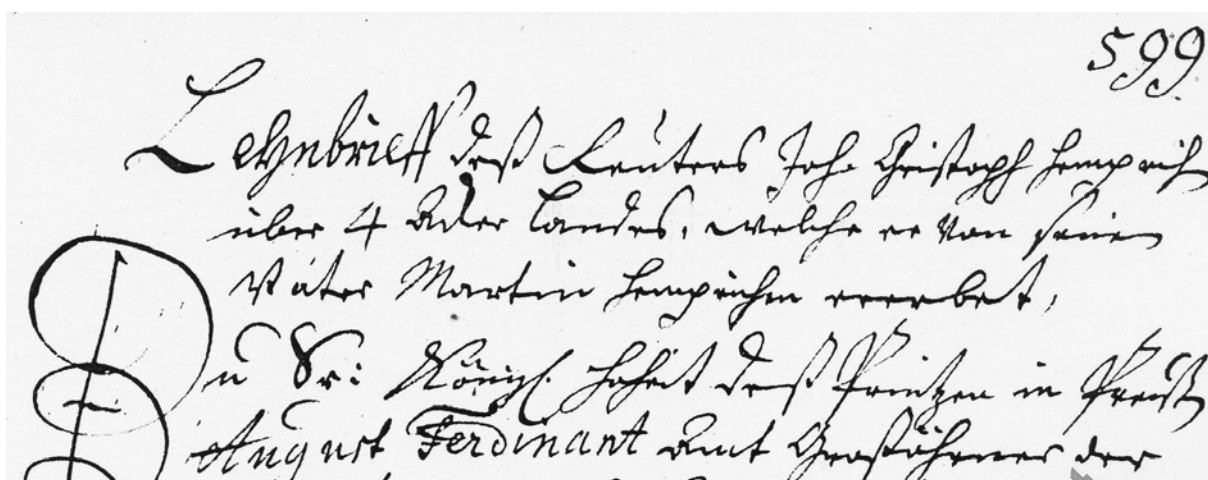 599
Lehnbrieff deß Reuters Joh. Christoph Hemprich
über 4 Acker Landes, welche er von seinen
Vater Martin Hemprichen ererbet,
In Sr: Königl. Hoheit deß Printzen in Preuß
August Ferdinant Amt Großöhrner der